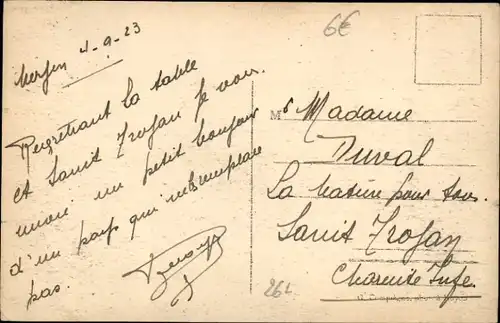 4-9-23
Regrettant la table
et Saint Trojan je vous
envoie un petit bonjour
d'un pays qui ne remplace
pas.
6€
M
Madame
Duval
La nature pour tous.
Saint Trojan
Charente Infre
262